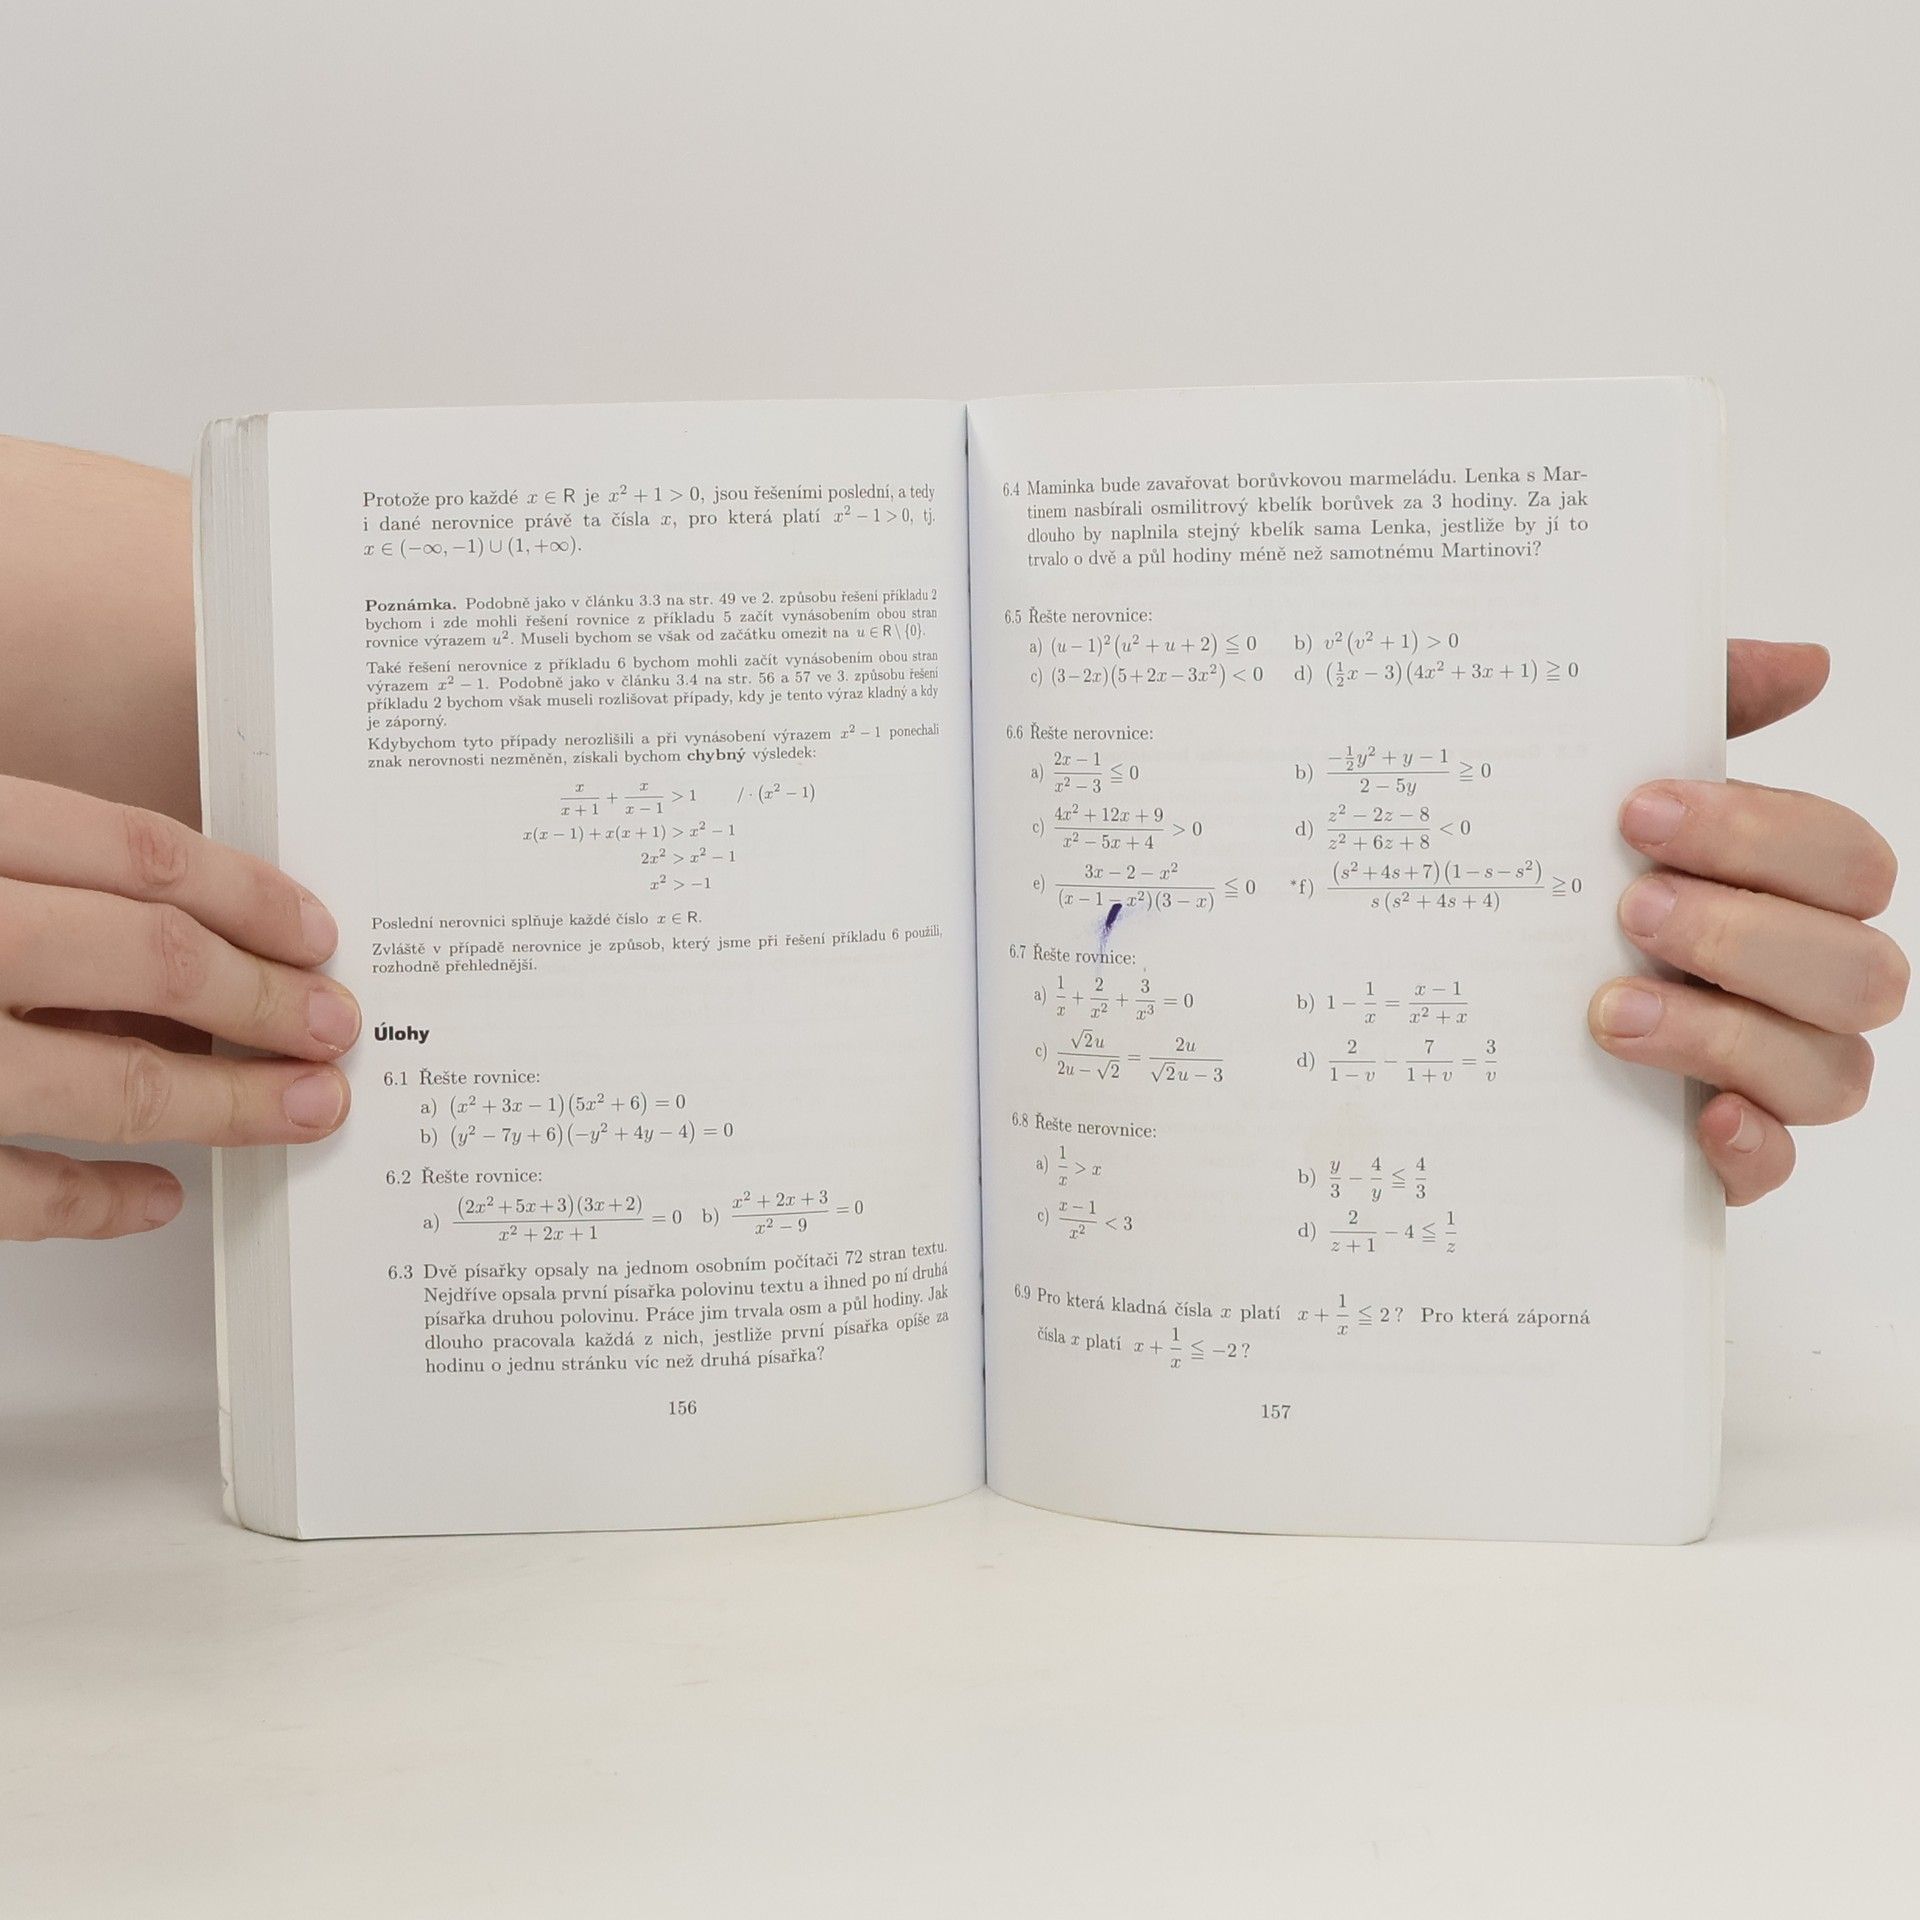 Protože pro každé x ∈ R je x² + 1 > 0, jsou řešeními poslední, a tedy
i dané nerovnice právě ta čísla x, pro která platí x² − 1 > 0, tj.
x ∈ (−∞, −1) ∪ (1, +∞).
Poznámka. Podobně jako v článku 3.3 na str. 49 ve 2. způsobu řešení příkladu 2
bychom i zde mohli řešení rovnice z příkladu 5 začít vynásobením obou stran
rovnice výrazem u². Museli bychom se však od začátku omezit na u ∈ R \ {0}.
Také řešení nerovnice z příkladu 6 bychom mohli začít vynásobením obou stran
výrazem x² − 1. Podobně jako v článku 3.4 na str. 56 a 57 ve 3. způsobu řešení
příkladu 2 bychom však museli rozlišovat případy, kdy je tento výraz kladný a kdy
je záporný.
Kdybychom tyto případy nerozlišili a při vynásobení výrazem x² − 1 ponechali
znak nerovnosti nezměněn, získali bychom chybný výsledek:
x/(x + 1) + x/(x − 1) > 1 / · (x² − 1)
x(x − 1) + x(x + 1) > x² − 1
2x² > x² − 1
x² > −1
Poslední nerovnici splňuje každé číslo x ∈ R.
Zvláště v případě nerovnice je způsob, který jsme při řešení příkladu 6 použili,
rozhodně přehlednější.
Úlohy
6.1 Řešte rovnice:
a) (x² + 3x − 1)(5x² + 6) = 0
b) (y² − 7y + 6)(−y² + 4y − 4) = 0
6.2 Řešte rovnice:
a) (2x² + 5x + 3)(3x + 2)/(x² + 2x + 1) = 0 b) (x² + 2x + 3)/(x² − 9) = 0
6.3 Dvě písařky opsaly na jednom osobním počítači 72 stran textu.
Nejdříve opsala první písařka polovinu textu a ihned po ní druhá
písařka druhou polovinu. Práce jim trvala osm a půl hodiny. Jak
dlouho pracovala každá z nich, jestliže první písařka opíše za
hodinu o jednu stránku víc než druhá písařka?
156
6.4 Maminka bude zavařovat borůvkovou marmeládu. Lenka s Mar-
tinem nasbírali osmilitrový kbelík borůvek za 3 hodiny. Za jak
dlouho by naplnila stejný kbelík sama Lenka, jestliže by jí to
trvalo o dvě a půl hodiny méně než samotnému Martinovi?
6.5 Řešte nerovnice:
a) (u − 1)²(u² + u + 2) ≦ 0 b) v²(v² + 1) > 0
c) (3 − 2x)(5 + 2x − 3x²) < 0 d) (½x − 3)(4x² + 3x + 1) ≧ 0
6.6 Řešte nerovnice:
a) (2x − 1)/(x² − 3) ≦ 0 b) (−½y² + y − 1)/(2 − 5y) ≧ 0
c) (4x² + 12x + 9)/(x² − 5x + 4) > 0 d) (z² − 2z − 8)/(z² + 6z + 8) < 0
e) (3x − 2 − x²)/((x − 1 − x²)(3 − x)) ≦ 0 *f) (s² + 4s + 7)(1 − s − s²)/(s(s² + 4s + 4)) ≧ 0
6.7 Řešte rovnice:
a) 1/x + 2/x² + 3/x³ = 0 b) 1 − 1/x = (x − 1)/(x² + x)
c) √2u/(2u − √2) = 2u/(√2u − 3) d) 2/(1 − v) − 7/(1 + v) = 3/v
6.8 Řešte nerovnice:
a) 1/x > x b) y/3 − 4/y ≦ 4/3
c) (x − 1)/x² < 3 d) 2/(z + 1) − 4 ≦ 1/z
6.9 Pro která kladná čísla x platí x + 1/x ≦ 2? Pro která záporná
čísla x platí x + 1/x ≦ −2?
157